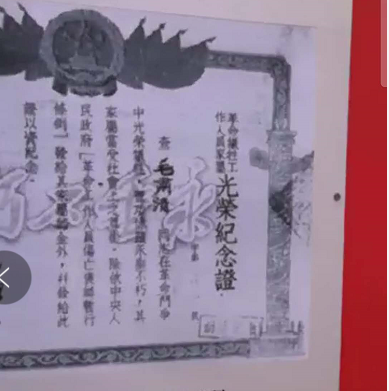 革命犧牲工
作人員家屬
光榮紀念證
字第 號
查 毛 同志在革命鬥爭
中光榮犧牲,豐功偉績永垂不朽,其
家屬當受社會上之尊崇。除依中央人
民政府「革命工作人員傷亡褒卹暫行
條例」發給其家屬卹金外,並發給此
證以資紀念。
永垂不朽